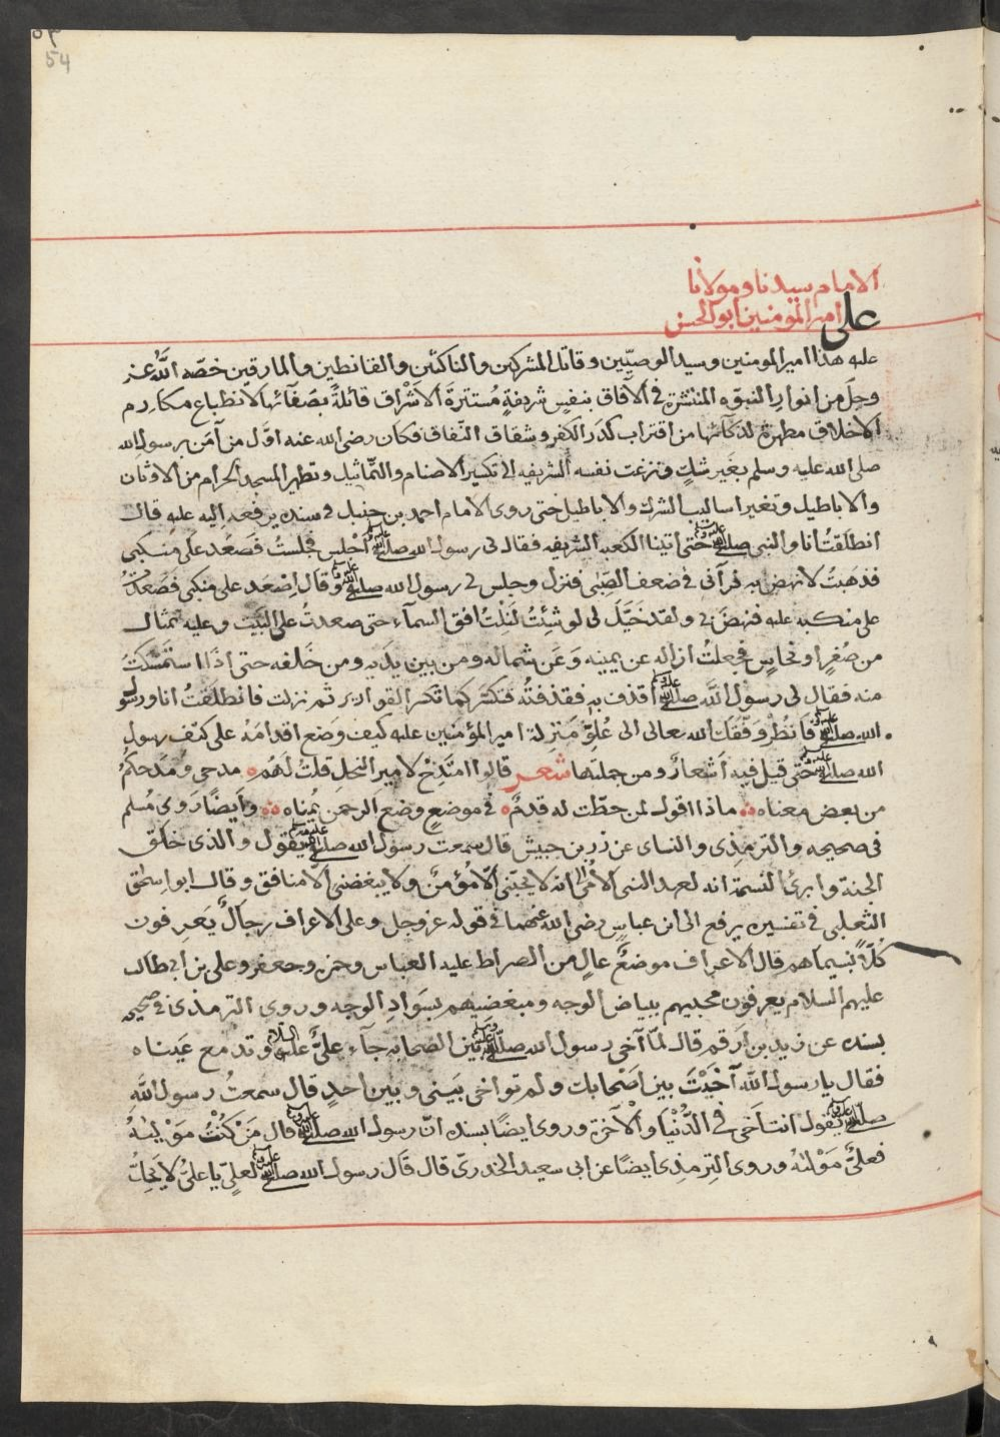 ٥٣
54
الامام سيدنا ومولانا
على امير المومنين ابو الحسن
عله هذا امير المومنين وسيد الوصيّين وقاتل المشركين والناكثين والقانطين والمارقين خصّه اللّه عز
وجل من انوار النبوه المنتشرة فى الآفاق بنفس شريفةٍ مُستترةَ الاشراق قائلةً بصَفآئها لانطباع مكارم
الاخلاق مطهرة لذكآئها من اقتراب كدَر الكفر وشقاق النّفاق فكان رضى الله عنه اوّل من آمَن برسول الله
صلى الله عليه وسلم بغَير شكٍ ونزعت نفسه الشريفه الى تكسير الاصنام والتّماثيل وتطهير المسجد الحرام من الاوثان
والاباطيل وتغيير اساليب الشرك والاباطيل حتى روى الامام احمد بن حنبل فى سنده يرفعه اليه عليه قال
انطلقتُ انا والنبى صلى الله عليه وسلم حتى اتينا الكعبه الشريفه فقال لى رسول الله صلى الله عليه وسلم اجلس فجلستُ فصَعُد على منكبى
فذهبتُ لانهض به فرآنى فى ضعف الصّبى فنزل وجلس لى رسول الله صلى الله عليه وسلم وقال اِصْعَد على منكبى فصَعَدتُ
على منكبه عليه فنهضَ بى ولقد خيّلَ لى لو شئتُ لَنِلْتُ افق السمآء حتى صعدتُ على البَيت وعليه تمثال
من صُفرٍ او نحاسٍ فجعلتُ ازاله عن يمينه وَعَن شماله ومن بين يديه ومن خَلفه حتى اذا استمسَكتُ
منه فقال لى رسول اللَّه صلى الله عليه وسلم اقذف به فقذفتُه فتكسّر كما تكسر القوارير ثم نزلت فانطلقتُ انا ورسول
الله صلى الله عليه وسلم فَانظُر وَفّقكَ الله تعالى الى عُلوّ منزِلة امير المؤمنين عليه كيف وَضع اقدامَهُ على كتف رسول
الله صلى الله عليه وسلم حتى قيل فيه اَشعارٌ ومن جملتها شعر قالوا امتَدِحْ لامير النحل قلتُ لَهُم ه مدحى ومَدحكُم
من بعض معناه ه ماذا اقول لمن حطّت له قدمٌ ه فى موضعٍ وضع الرحمن يُمناه ه وأيضًا رَوى مُسلم
فى صحيحه والترمذى والنساى عن زر بن حبيش قال سمعت رسول الله صلى الله عليه وسلم يقول والذى خلق
الجنة وابرئ النسمة انه لعهد النبى الامّى انه لا يحبّنى الّا مؤمنٌ ولا يبغضنى الّا منافق وقال ابو اسحٰق
الثعلبى فى تفسيره يرفع الى ابن عباس رضى الله عنهما فى قوله عز وجل وعلى الاعراف رجالٌ يَعرفون
كلّاً بسيماهم قال الاعراف موضعٌ عالٍ من الصراط عليه العباس وحمزه وجعفر وعلى بن ابى طالب
عليهم السلام يعرفون محبيهم ببياض الوجه ومبغضيهم بسَوادِ الوجه وروى الترمذى فى صحيحه
بسنده عن زيد بن ارقم قال لمّا آخى رسول الله صلى الله عليه وسلم بين الصحابه جآء علىٌّ عليه السلام وتدمع عَيناه
فقال يا رسول اللَّه آخَيْتَ بين اَصْحابك ولم تواخى بَينى وبين احدٍ قال سمعتُ رسول اللّهِ
صلى الله عليه وسلم يقول انت اَخى فى الدُّنْيَا وَالآخرة وروى ايضًا بسنده انّ رسول الله صلى الله عليه وسلم قال مَنْ كُنْتُ مَوْلٰيهُ
فعلىٌّ مَوْلٰهُ وروى الترمذى ايضًا عن ابى سعيد الخدرىّ قال قَال رسول الله صلى الله عليه وسلم لعلىّ يا علىُّ لا يَحِلُّ